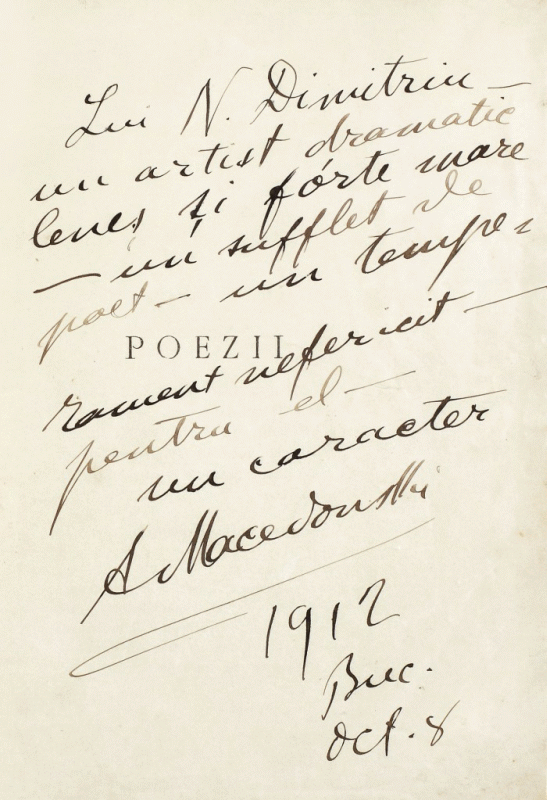 Lui N. Dimitriu —
un artist dramatic
leneș și fórte mare
— un suflet de
poet — un tempe=
POEZII
rament nefericit —
pentru el —
un caracter
A Macedonski
1912
Buc.
Oct. 8